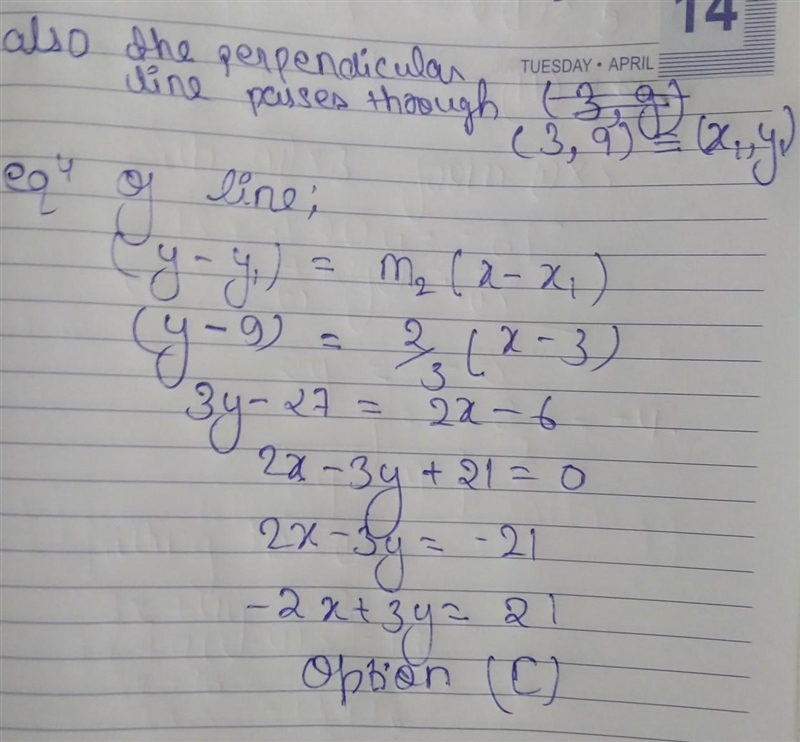 14
TUESDAY • APRIL
also the perpendicular
line passes through (3, 9)
(3, 9) = (x₁, y₁)
eqⁿ of line;
(y - y₁) = m₂ (x - x₁)
(y - 9) = 2/3 (x - 3)
3y - 27 = 2x - 6
2x - 3y + 21 = 0
2x - 3y = -21
-2x + 3y = 21
Option (C)